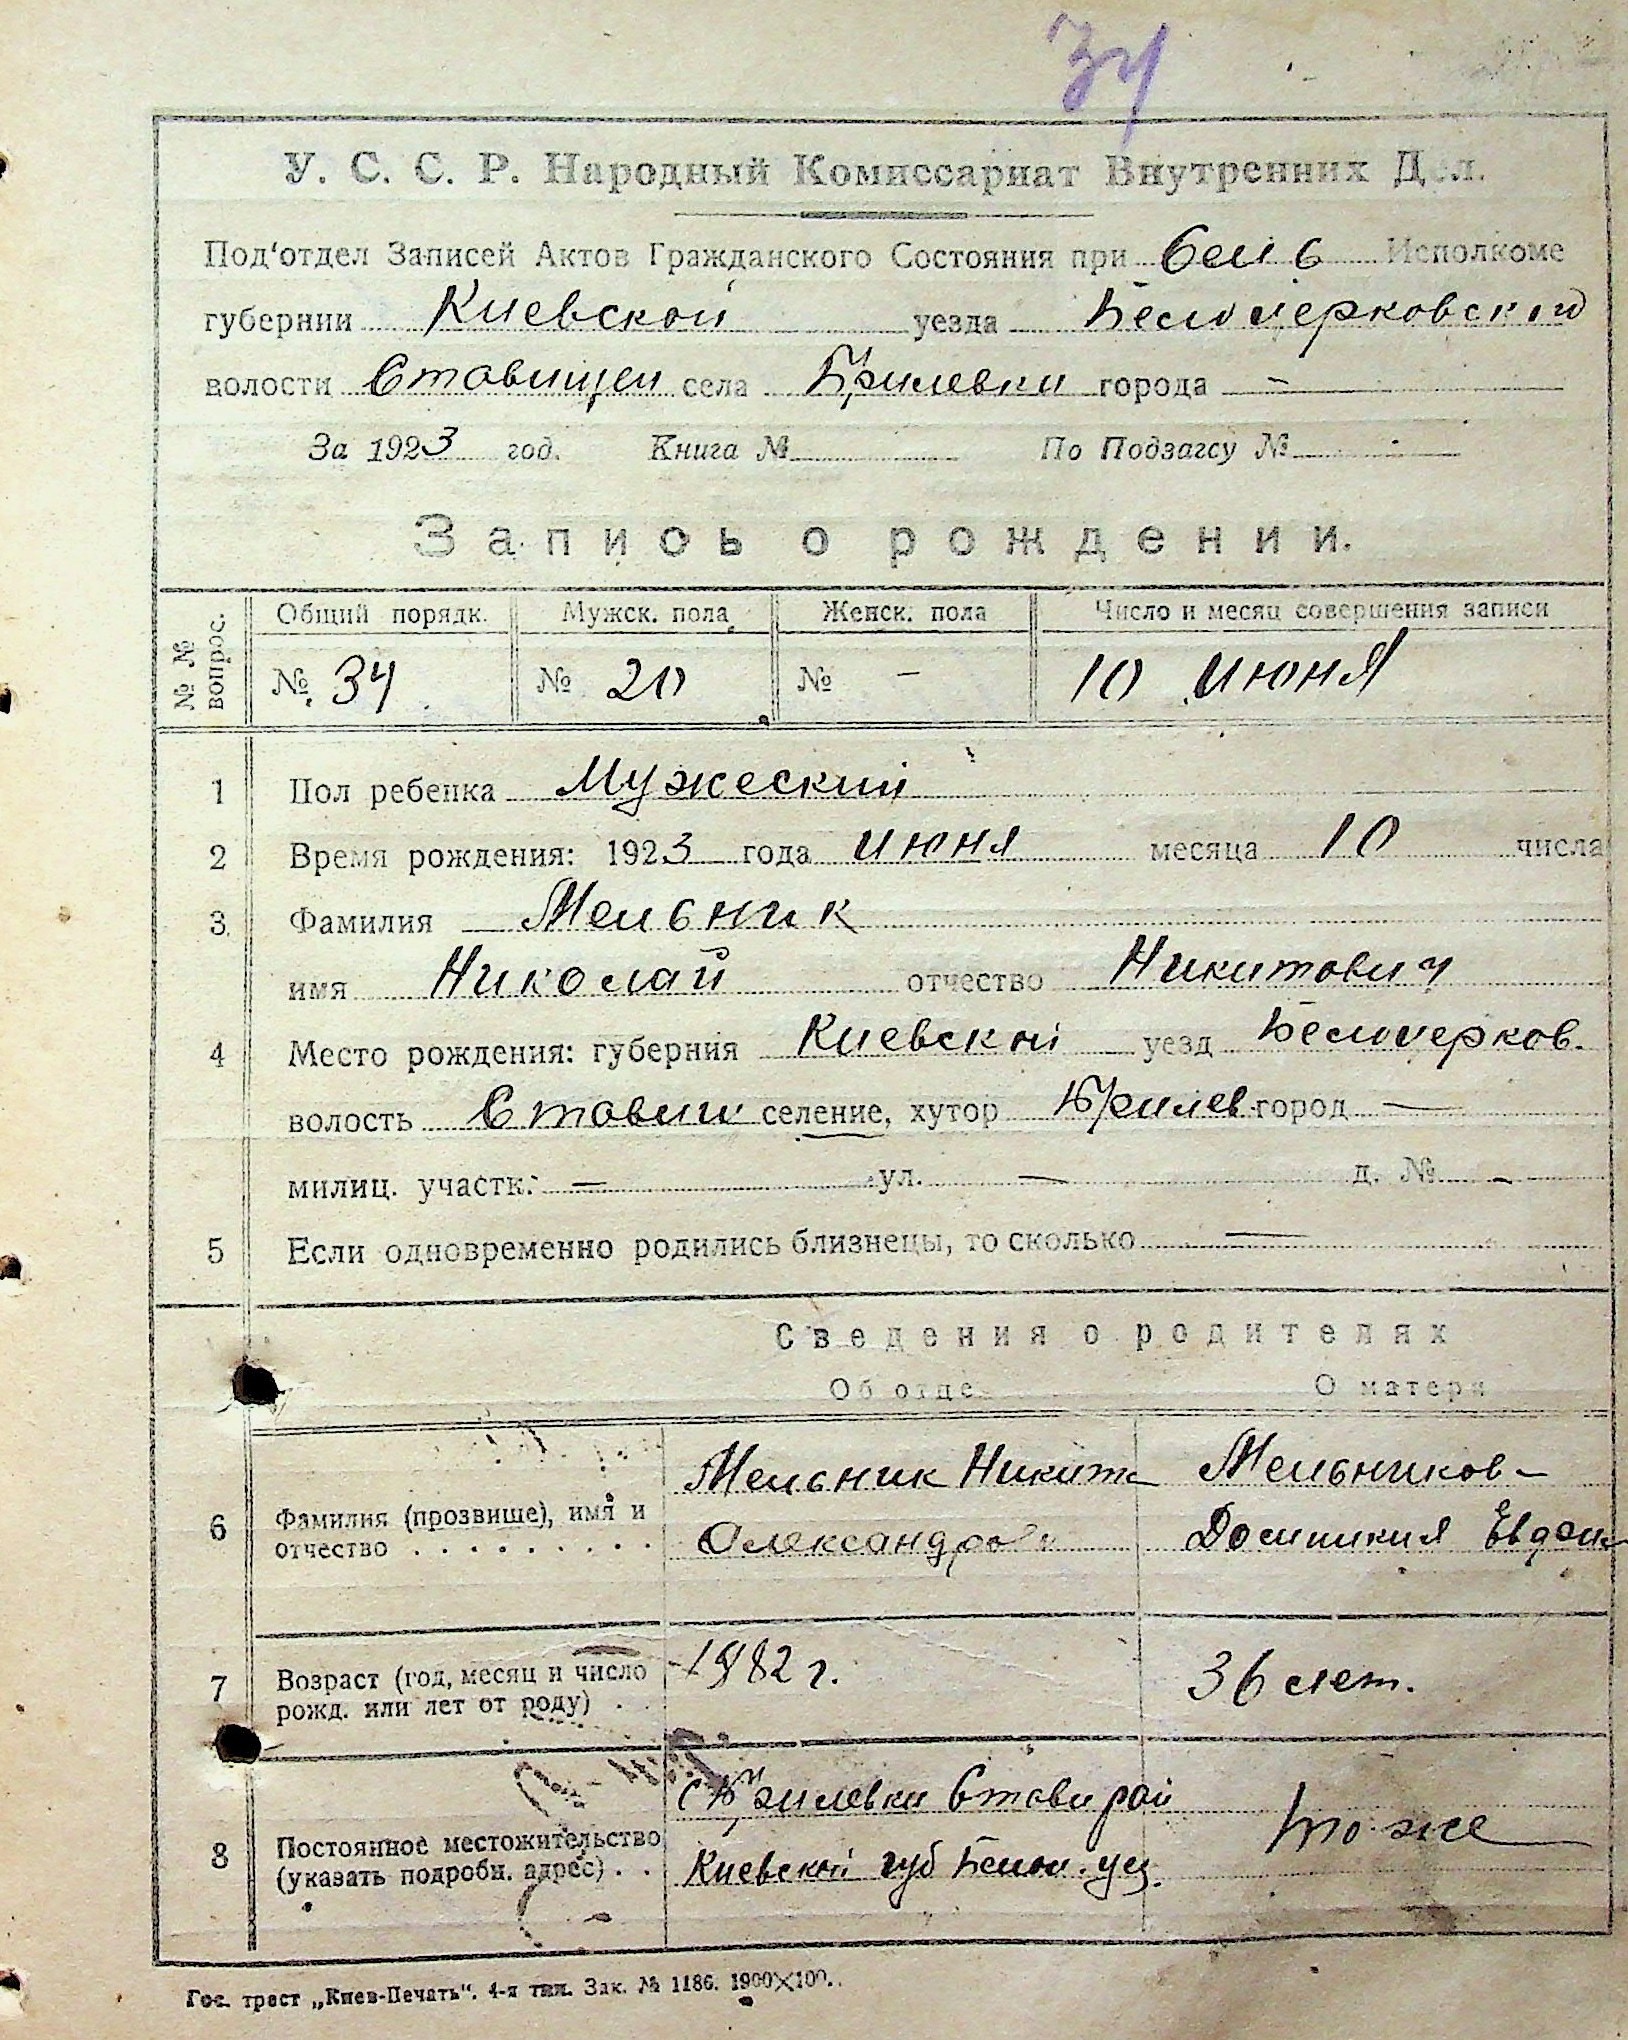 34
У. С. С. Р. Народный Комиссариат Внутренних Дел.
Под'отдел Записей Актов Гражданского Состояния при Сель Исполкоме
губернии Киевской уезда Белоцерковского
волости Ставищен села города -
За 1923 год. Книга № По Подзагсу №
Запись о рождении.
№ № вопрос. Общий порядк. Мужск. пола Женск. пола Число и месяц совершения записи
№ 34 № 20 № - 10 июня
1 Пол ребенка Мужеский
2 Время рождения: 1923 года июня месяца 10 числа
3 Фамилия Мельник
имя Николай отчество Никитович
4 Место рождения: губерния Киевской уезд Белоцерков.
волость Ставищ селение, хутор город —
милиц. участк. — ул. — д. № -
5 Если одновременно родились близнецы, то сколько —
Сведения о родителях
Об отце О матери
6 Фамилия (прозвище), имя и отчество . . . . . . . . . .
Мельник Никита
Олександров
Мельников-
Домникия Евдок
7 Возраст (год, месяц и число рожд. или лет от роду) . .
1882 г.
36 лет.
8 Постоянное местожительство (указать подробн. адрес) . .
Стави рай
Киевской губ Белоц. уез.
то-же
Гос. трест „Киев-Печать“. 4-я тип. Зак. № 1186. 1900×100.